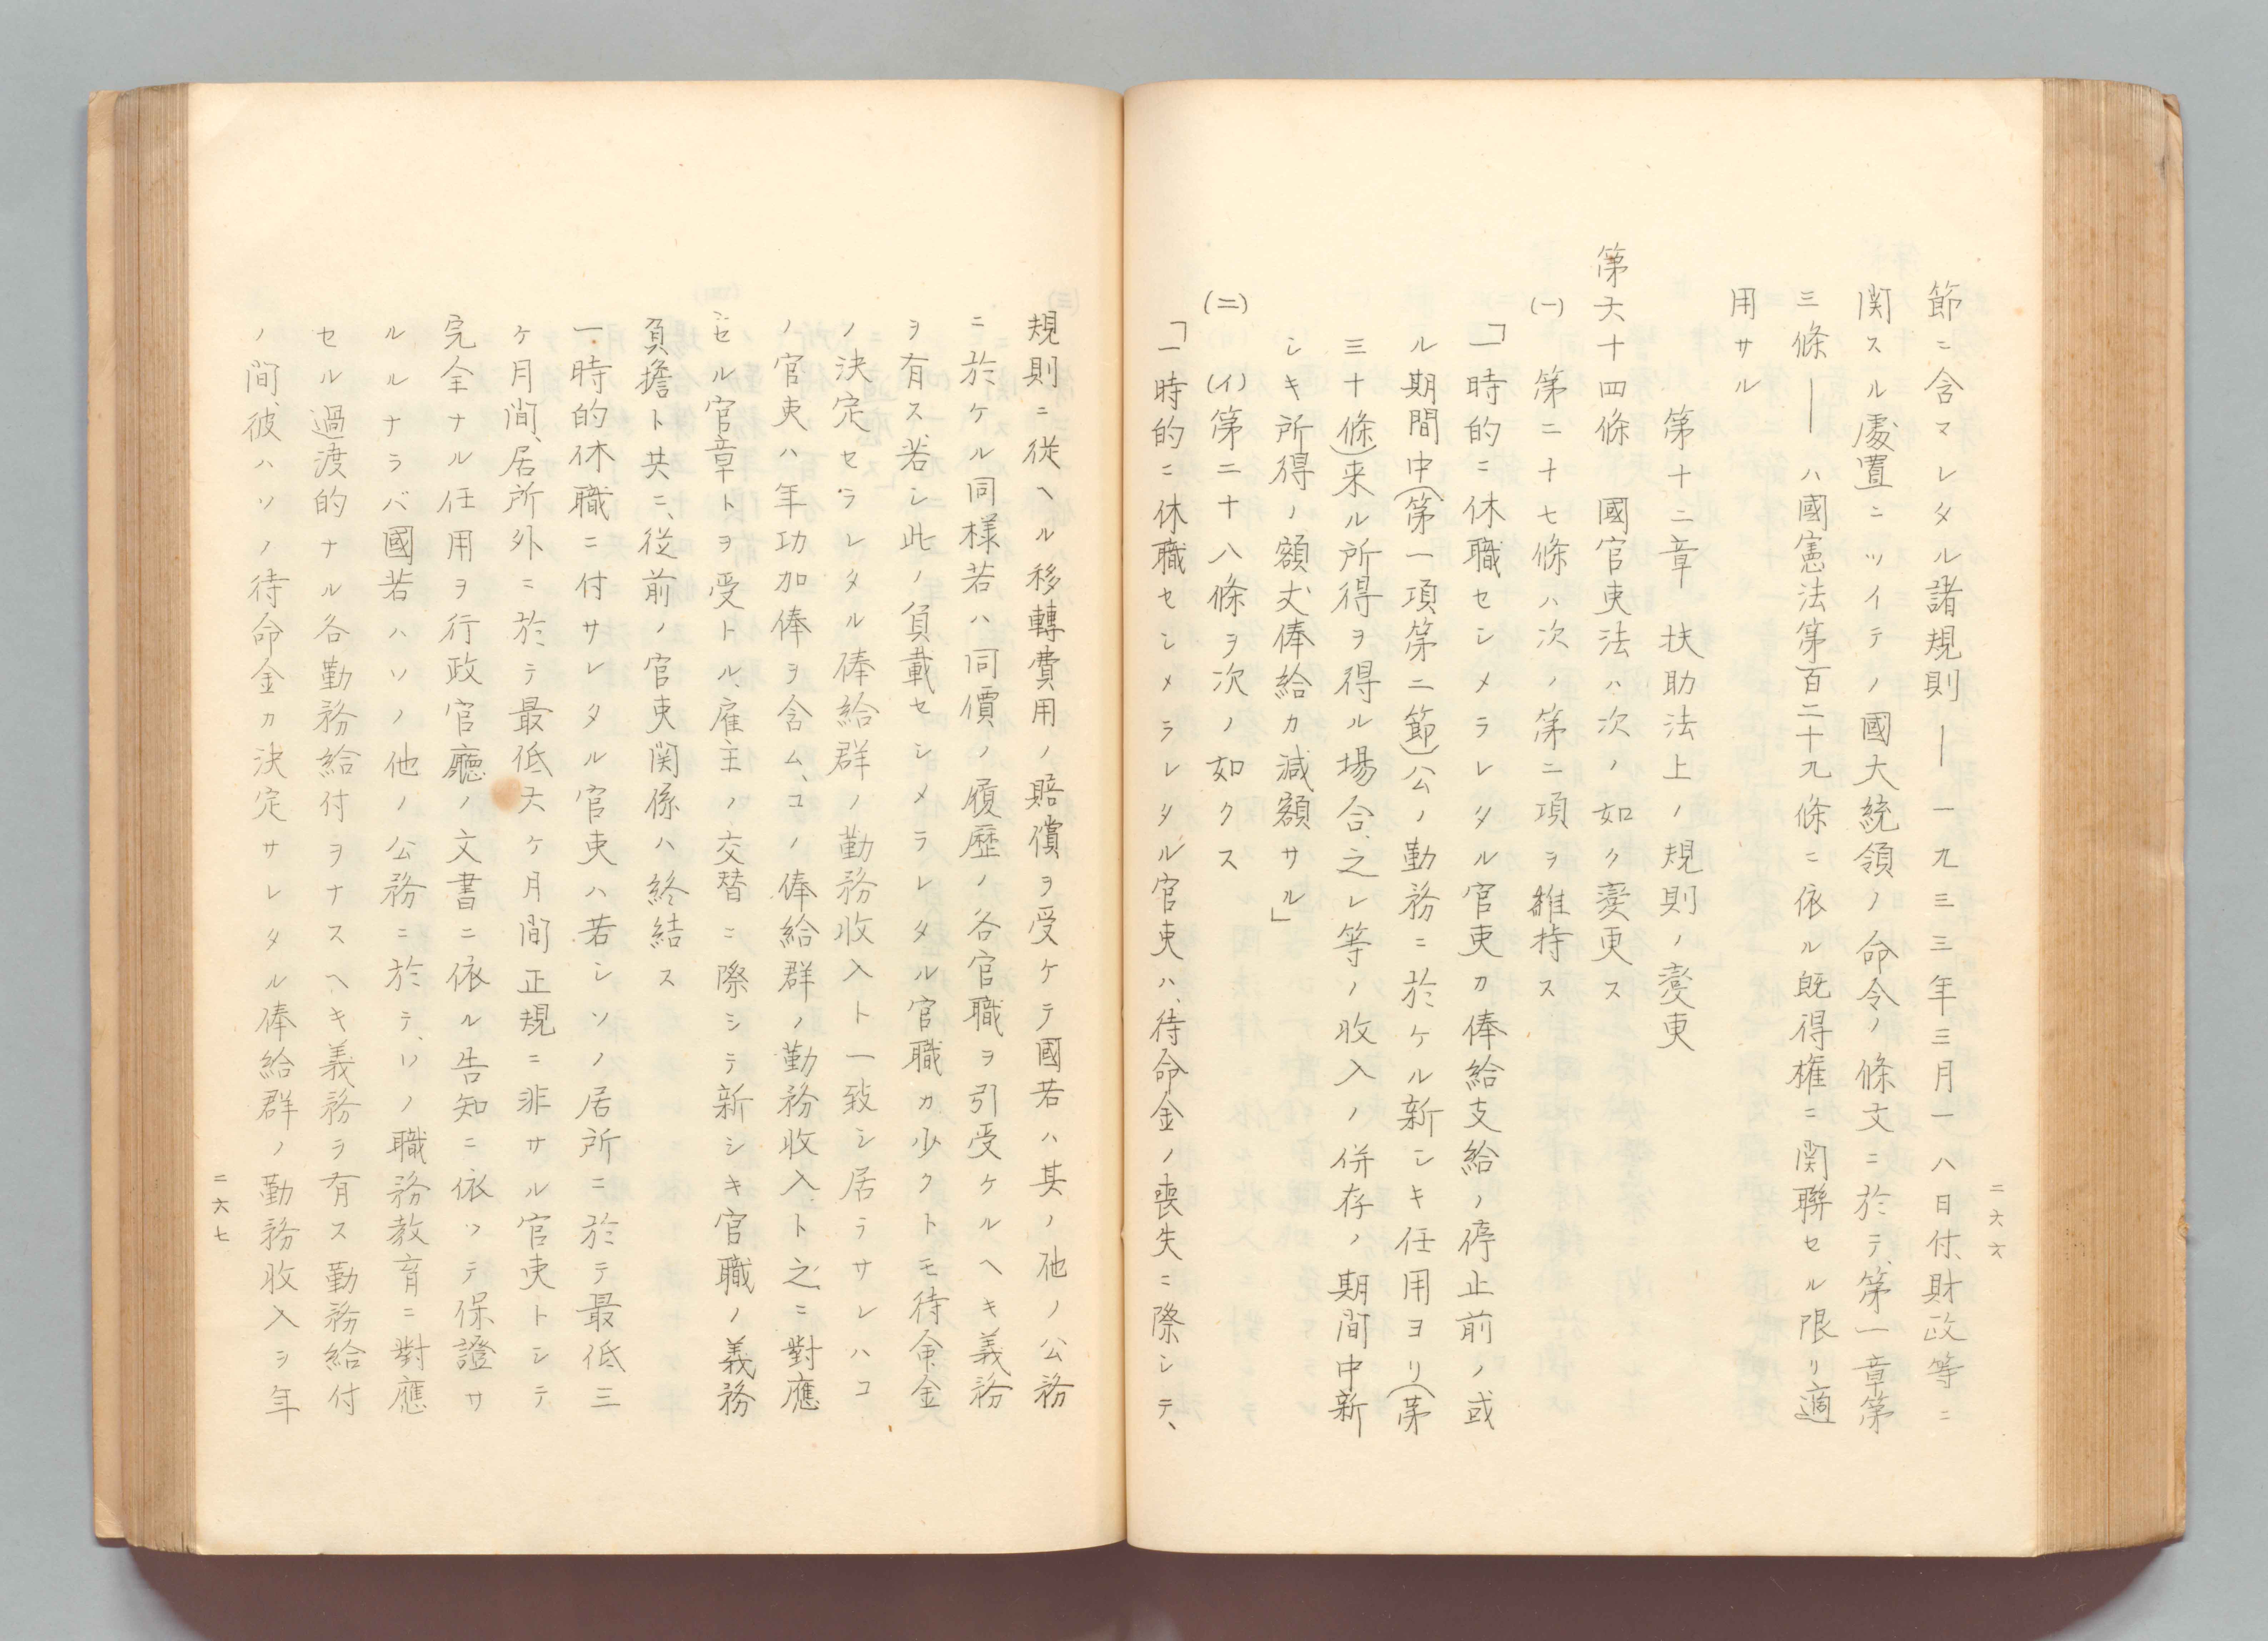 二六六
節ニ含マレタル諸規則――一九三三年三月一八日付、財政等ニ
関スル處置ニツイテノ國大統領ノ命令ノ條文ニ於テ、第一章第
三條――ハ國憲法第百二十九條ニ依ル既得権ニ関聯セル限リ適
用サル
第十二章　扶助法上ノ規則ノ變更
第六十四條　國官吏法ハ次ノ如ク變更ス
(一)　第二十七條ハ次ノ第二項ヲ維持ス
「一時的ニ休職セシメラレタル官吏カ俸給支給ノ停止前ノ或
ル期間中(第一項第二節)公ノ勤務ニ於ケル新シキ任用ヨリ(第
三十條)来ル所得ヲ得ル場合、之レ等ノ收入ノ併存ノ期間中新
シキ所得ノ額丈俸給カ減額サル」
(二)　(イ)第二十八條ヲ次ノ如クス
「一時的ニ休職セシメラレタル官吏ハ、待命金ノ喪失ニ際シテ、
規則ニ從ヘル移轉費用ノ賠償ヲ受ケテ國若ハ其ノ他ノ公務
ニ於ケル同様若ハ同價ノ履歴ノ各官職ヲ引受ケルヘキ義務
ヲ有ス若シ此ノ負載セシメラレタル官職カ少クトモ待命金
ノ決定セラレタル俸給群ノ勤務收入ト一致シ居ラサレハコ
ノ官吏ハ年功加俸ヲ含ム、コノ俸給群ノ勤務收入ト之ニ對應
セル官章トヲ受トル、雇主ノ交替ニ際シテ新シキ官職ノ義務
負擔ト共ニ、從前ノ官吏関係ハ終結ス
一時的休職ニ付サレタル官吏ハ若シソノ居所ニ於テ最低三
ケ月間、居所外ニ於テ最低六ケ月間正規ニ非サル官吏トシテ
完全ナル任用ヲ行政官廳ノ文書ニ依ル告知ニ依ツテ保證サ
ルルナラバ國若ハソノ他ノ公務ニ於テ、ソノ職務教育ニ對應
セル過渡的ナル各勤務給付ヲナスヘキ義務ヲ有ス勤務給付
ノ間、彼ハソノ待命金カ決定サレタル俸給群ノ勤務收入ヲ年
二六七